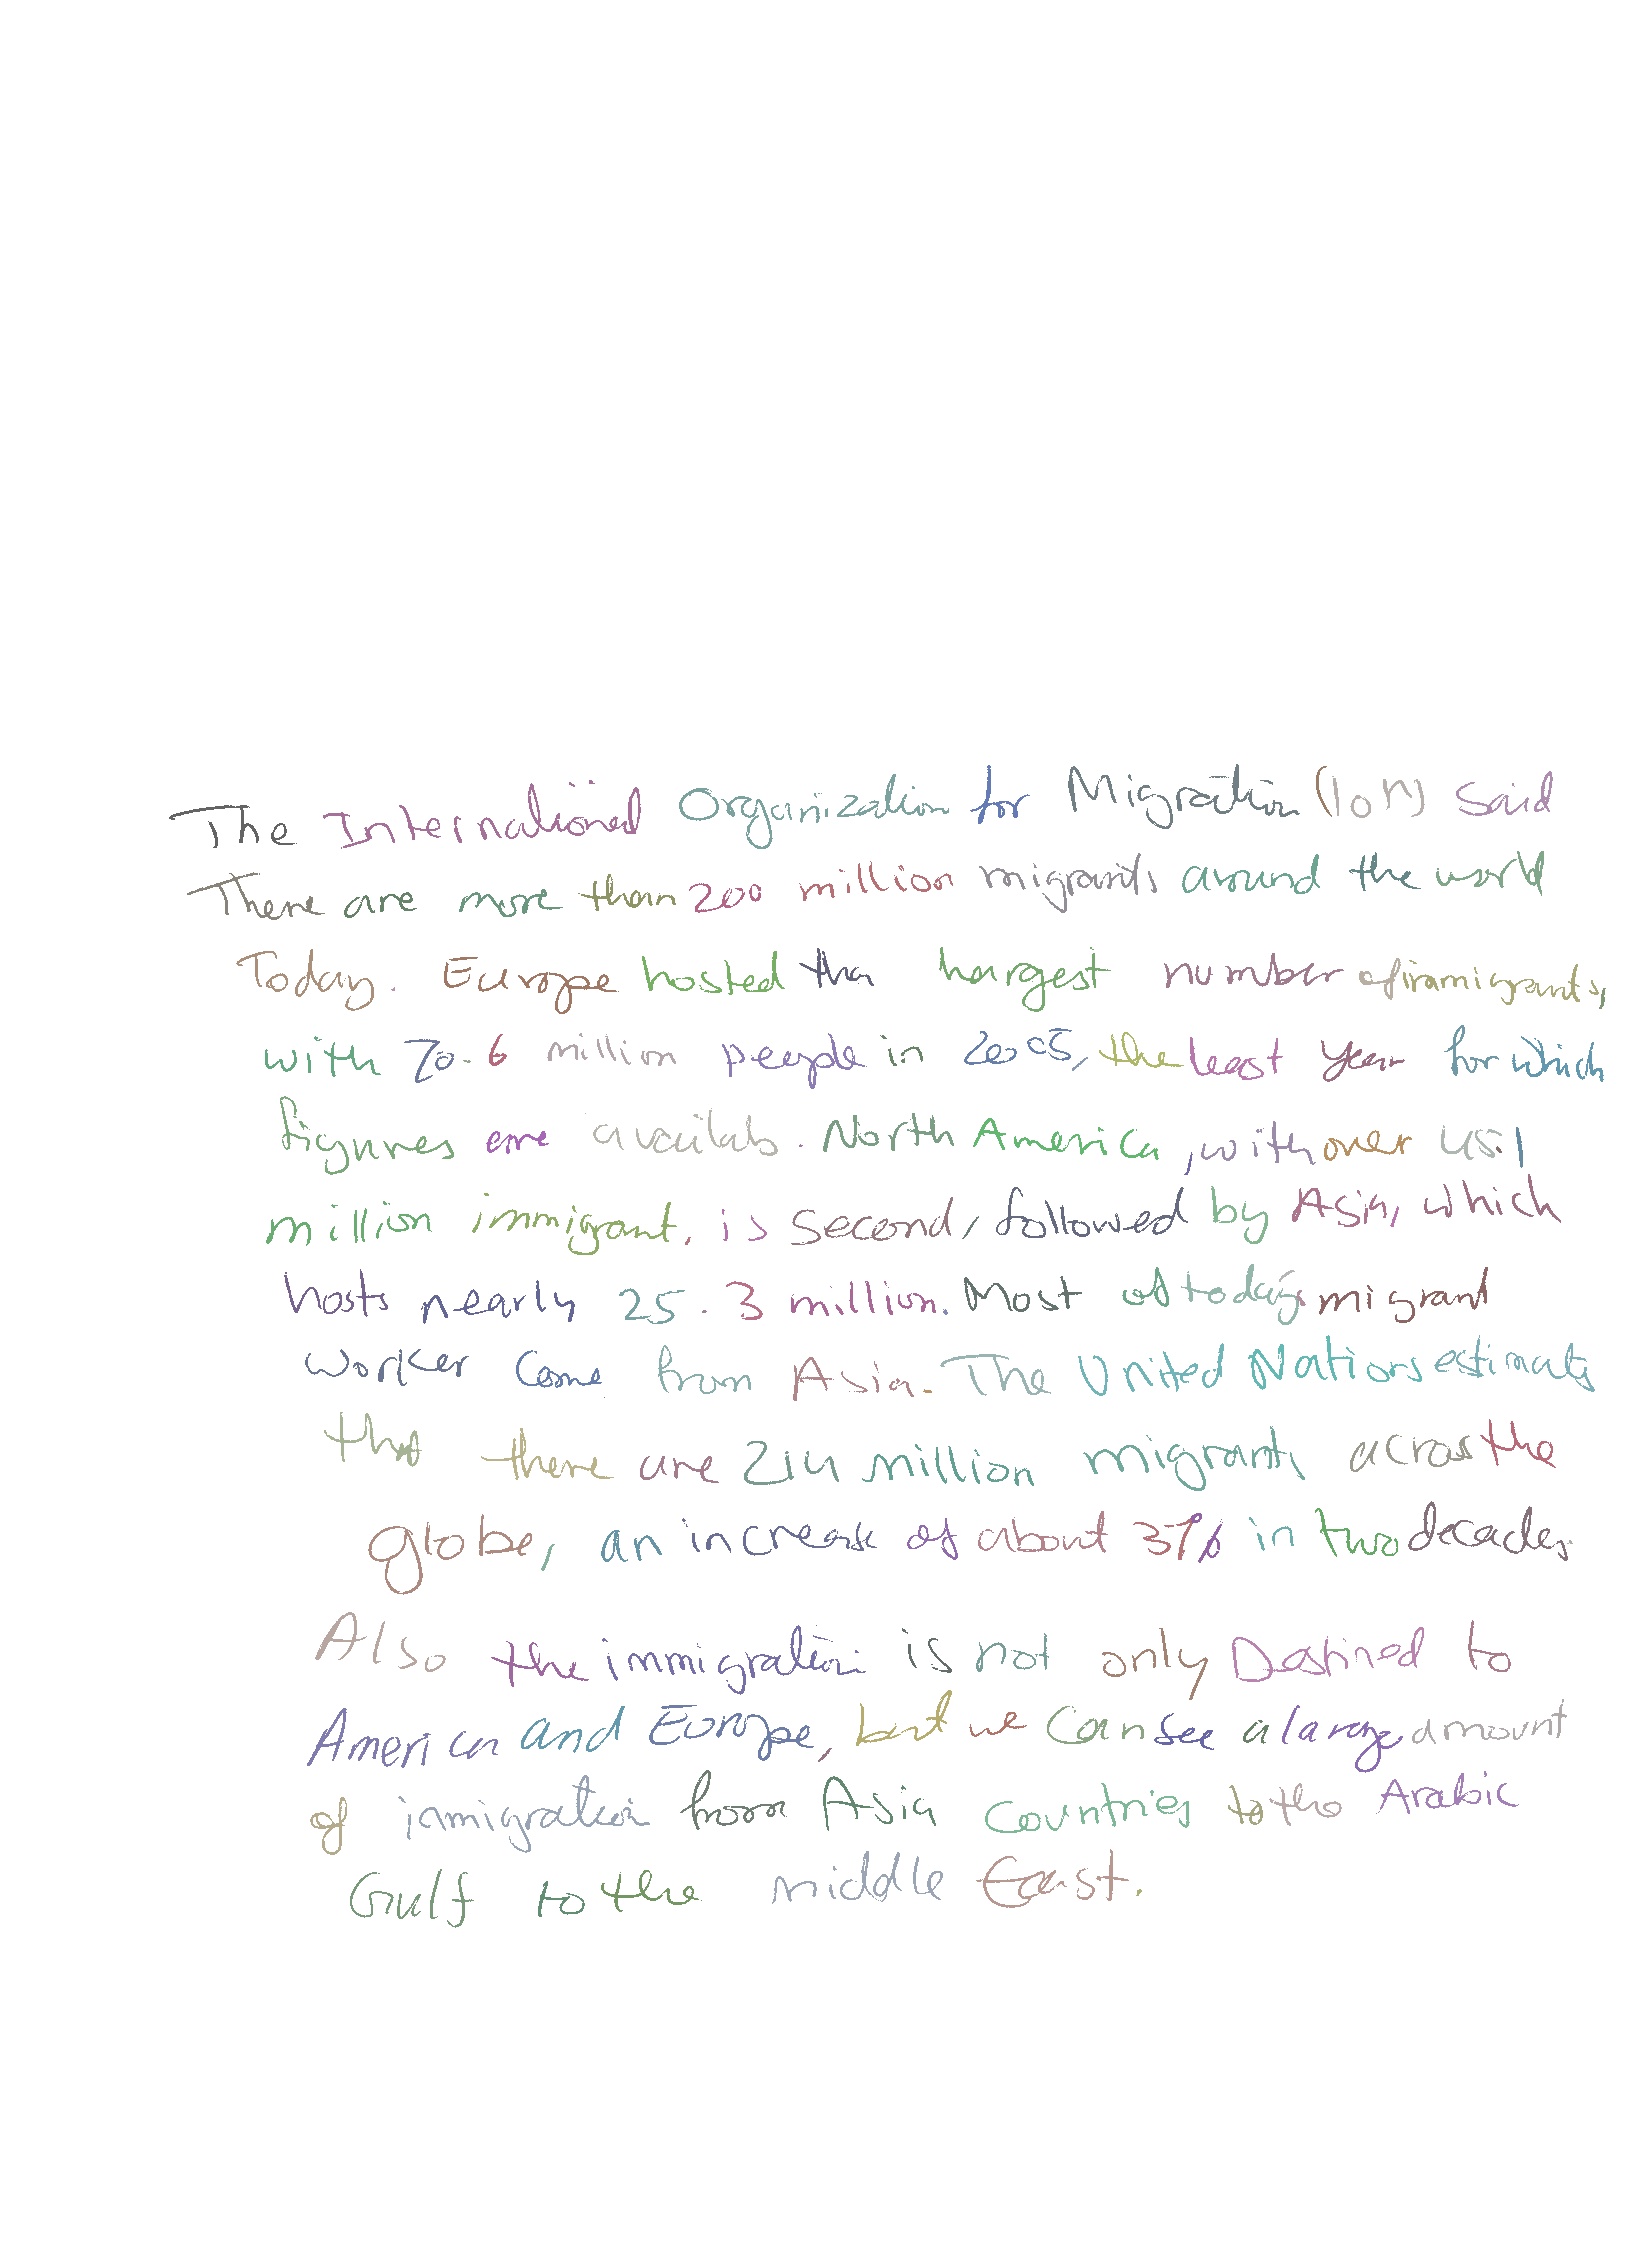 The International Organization for Migration (IOM) said
There are more than 200 million migrants around the world
Today. Europe hosted the hargest number of immigrants,
with 70.6 million people in 2005, the least year for which
figures are availab. North America, with over 45.1
million immigrant, is second, followed by Asia, which
hosts nearly 25.3 million. Most of today's migrant
worker come from Asia. The United Nations estimats
that there are 214 million migrants across the
globe, an increase of about 37% in two decades.
Also the immigration is not only Destined to
America and Europe, but we can see a large amount
of immigration from Asia countries to the Arabic
Gulf to the middle East.